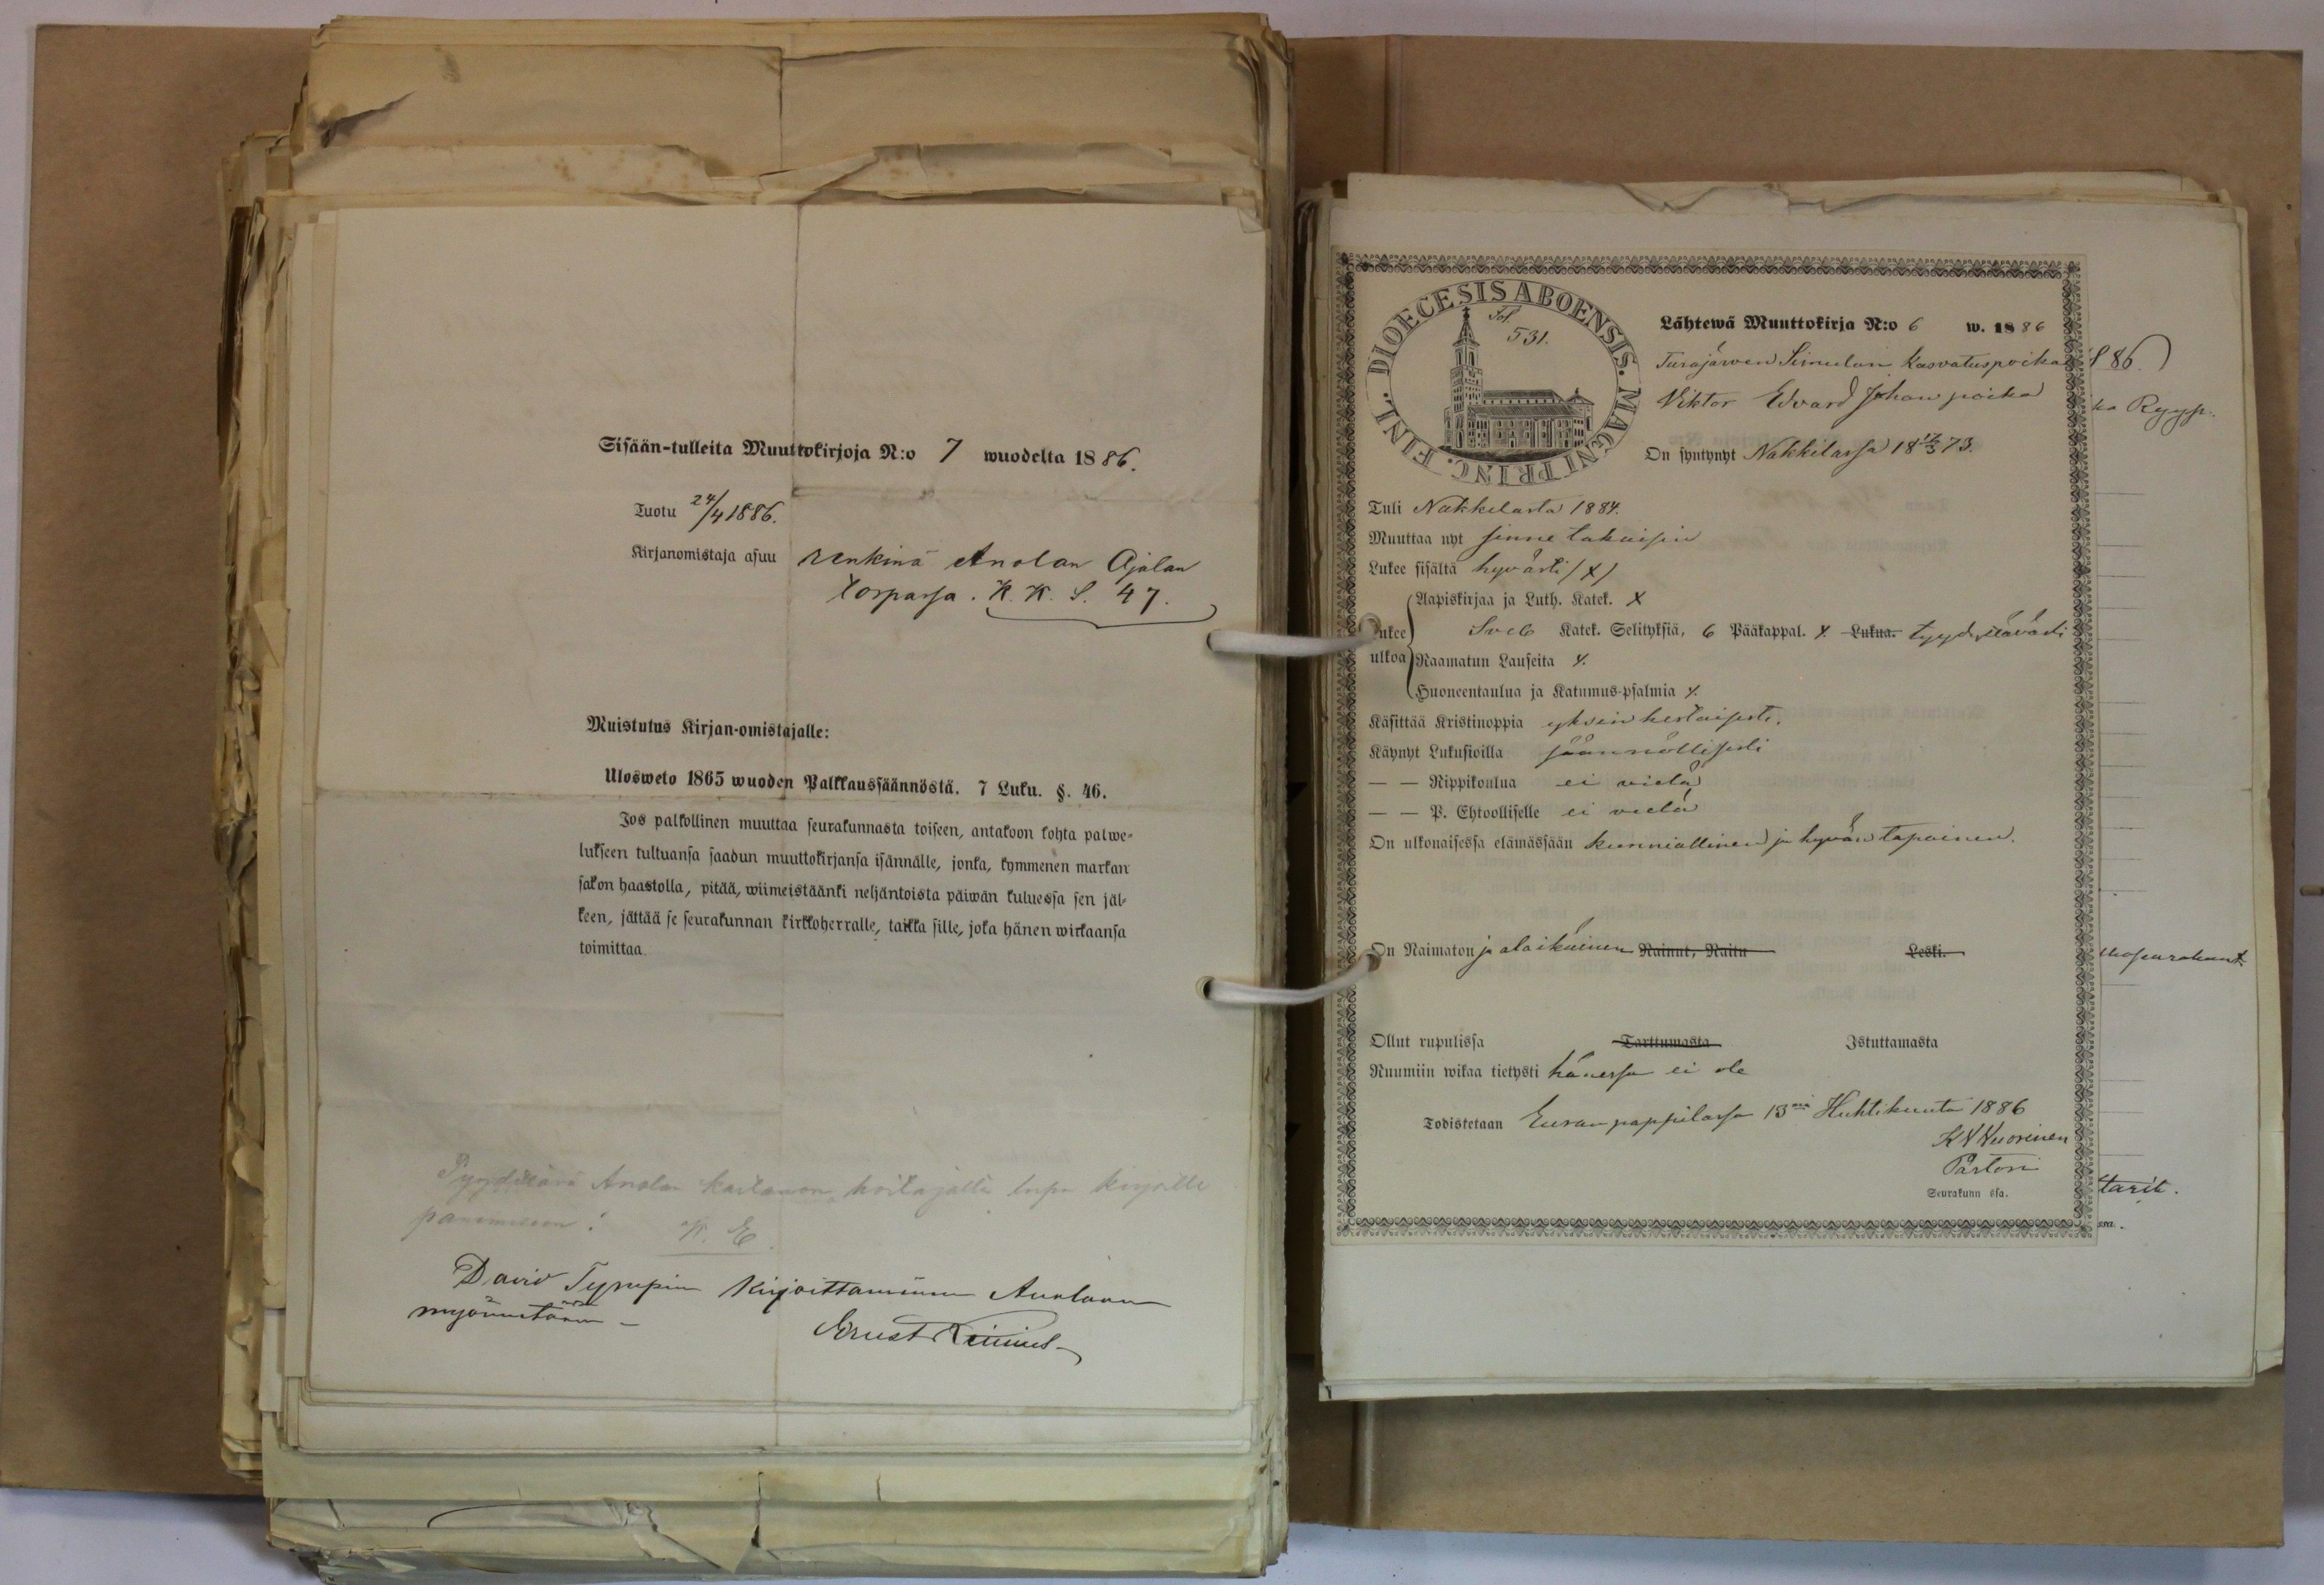 Sisään-tulleita Muuttokirjoja N:o 7 wuodelta 1886.
Tuotu 24/4 1886.
Kirjanomistaja asuu renkinä Anolan Ajolan
torpassa. K. K. S. 47.
Muistutus Kirjan-omistajalle:
Ulosweto 1865 wuoden Palkkaussäännöstä. 7 Luku. §. 46.
Jos palkollinen muuttaa seurakunnasta toiseen, antakoon kohta palwe-
lukseen tultuansa saadun muuttokirjansa isännälle, jonka, kymmenen markan
sakon haastolla, pitää, wiimeistäänki neljäntoista päiwän kuluessa sen jäl-
keen, jättää se seurakunnan kirkkoherralle, taikka sille, joka hänen wirkaansa
toimittaa.
Pyydetään Anolan kartanon hoitajalta lupa kirjoille
panemiseen: K. E.
David Tyrupin Kirjoittamisen Anolaan
myönnetään –
Ernst
DIOECESIS ABOENSIS. MAGNI PRINC. FINL.
Fol.
531.
Lähtewä Muuttokirja N:o 6 w. 1886
Turajärwen Simulan kasvatuspoika
Viktor Edvard Johanpoika
On syntynyt Nakkilassa 18 17/3 73.
Tuli Nakkilasta 1884.
Muuttaa nyt sinne takaisin
Lukee sisältä hyvästi (x)
Aapiskirjaa ja Luth. Katek. X
Lukee Sveb Katek. Selityksiä, 6 Pääkappal. x. Lukua. tyydyttävästi
ulkoa Raamatun Lauseita x.
Huoneentaulua ja Katumus-psalmia x.
Käsittää Kristinoppia yksinkertaisesti.
Käynyt Lukusioilla säännöllisesti
— — Rippikoulua ei vielä
— — P. Ehtoolliselle ei vielä
On ulkonaisessa elämässään kunniallinen ja hyväntapainen.
On Naimaton ja alaikäinen Nainut, Naitu Leski.
Ollut rupulissa Tarttumasta Istuttamasta
Ruumiin wikaa tietysti hänessä ei ole
Todistetaan Euran pappilassa 13 Huhtikuuta 1886
K V Vuorinen
Pastori
Seurakunn ssa.
86.)